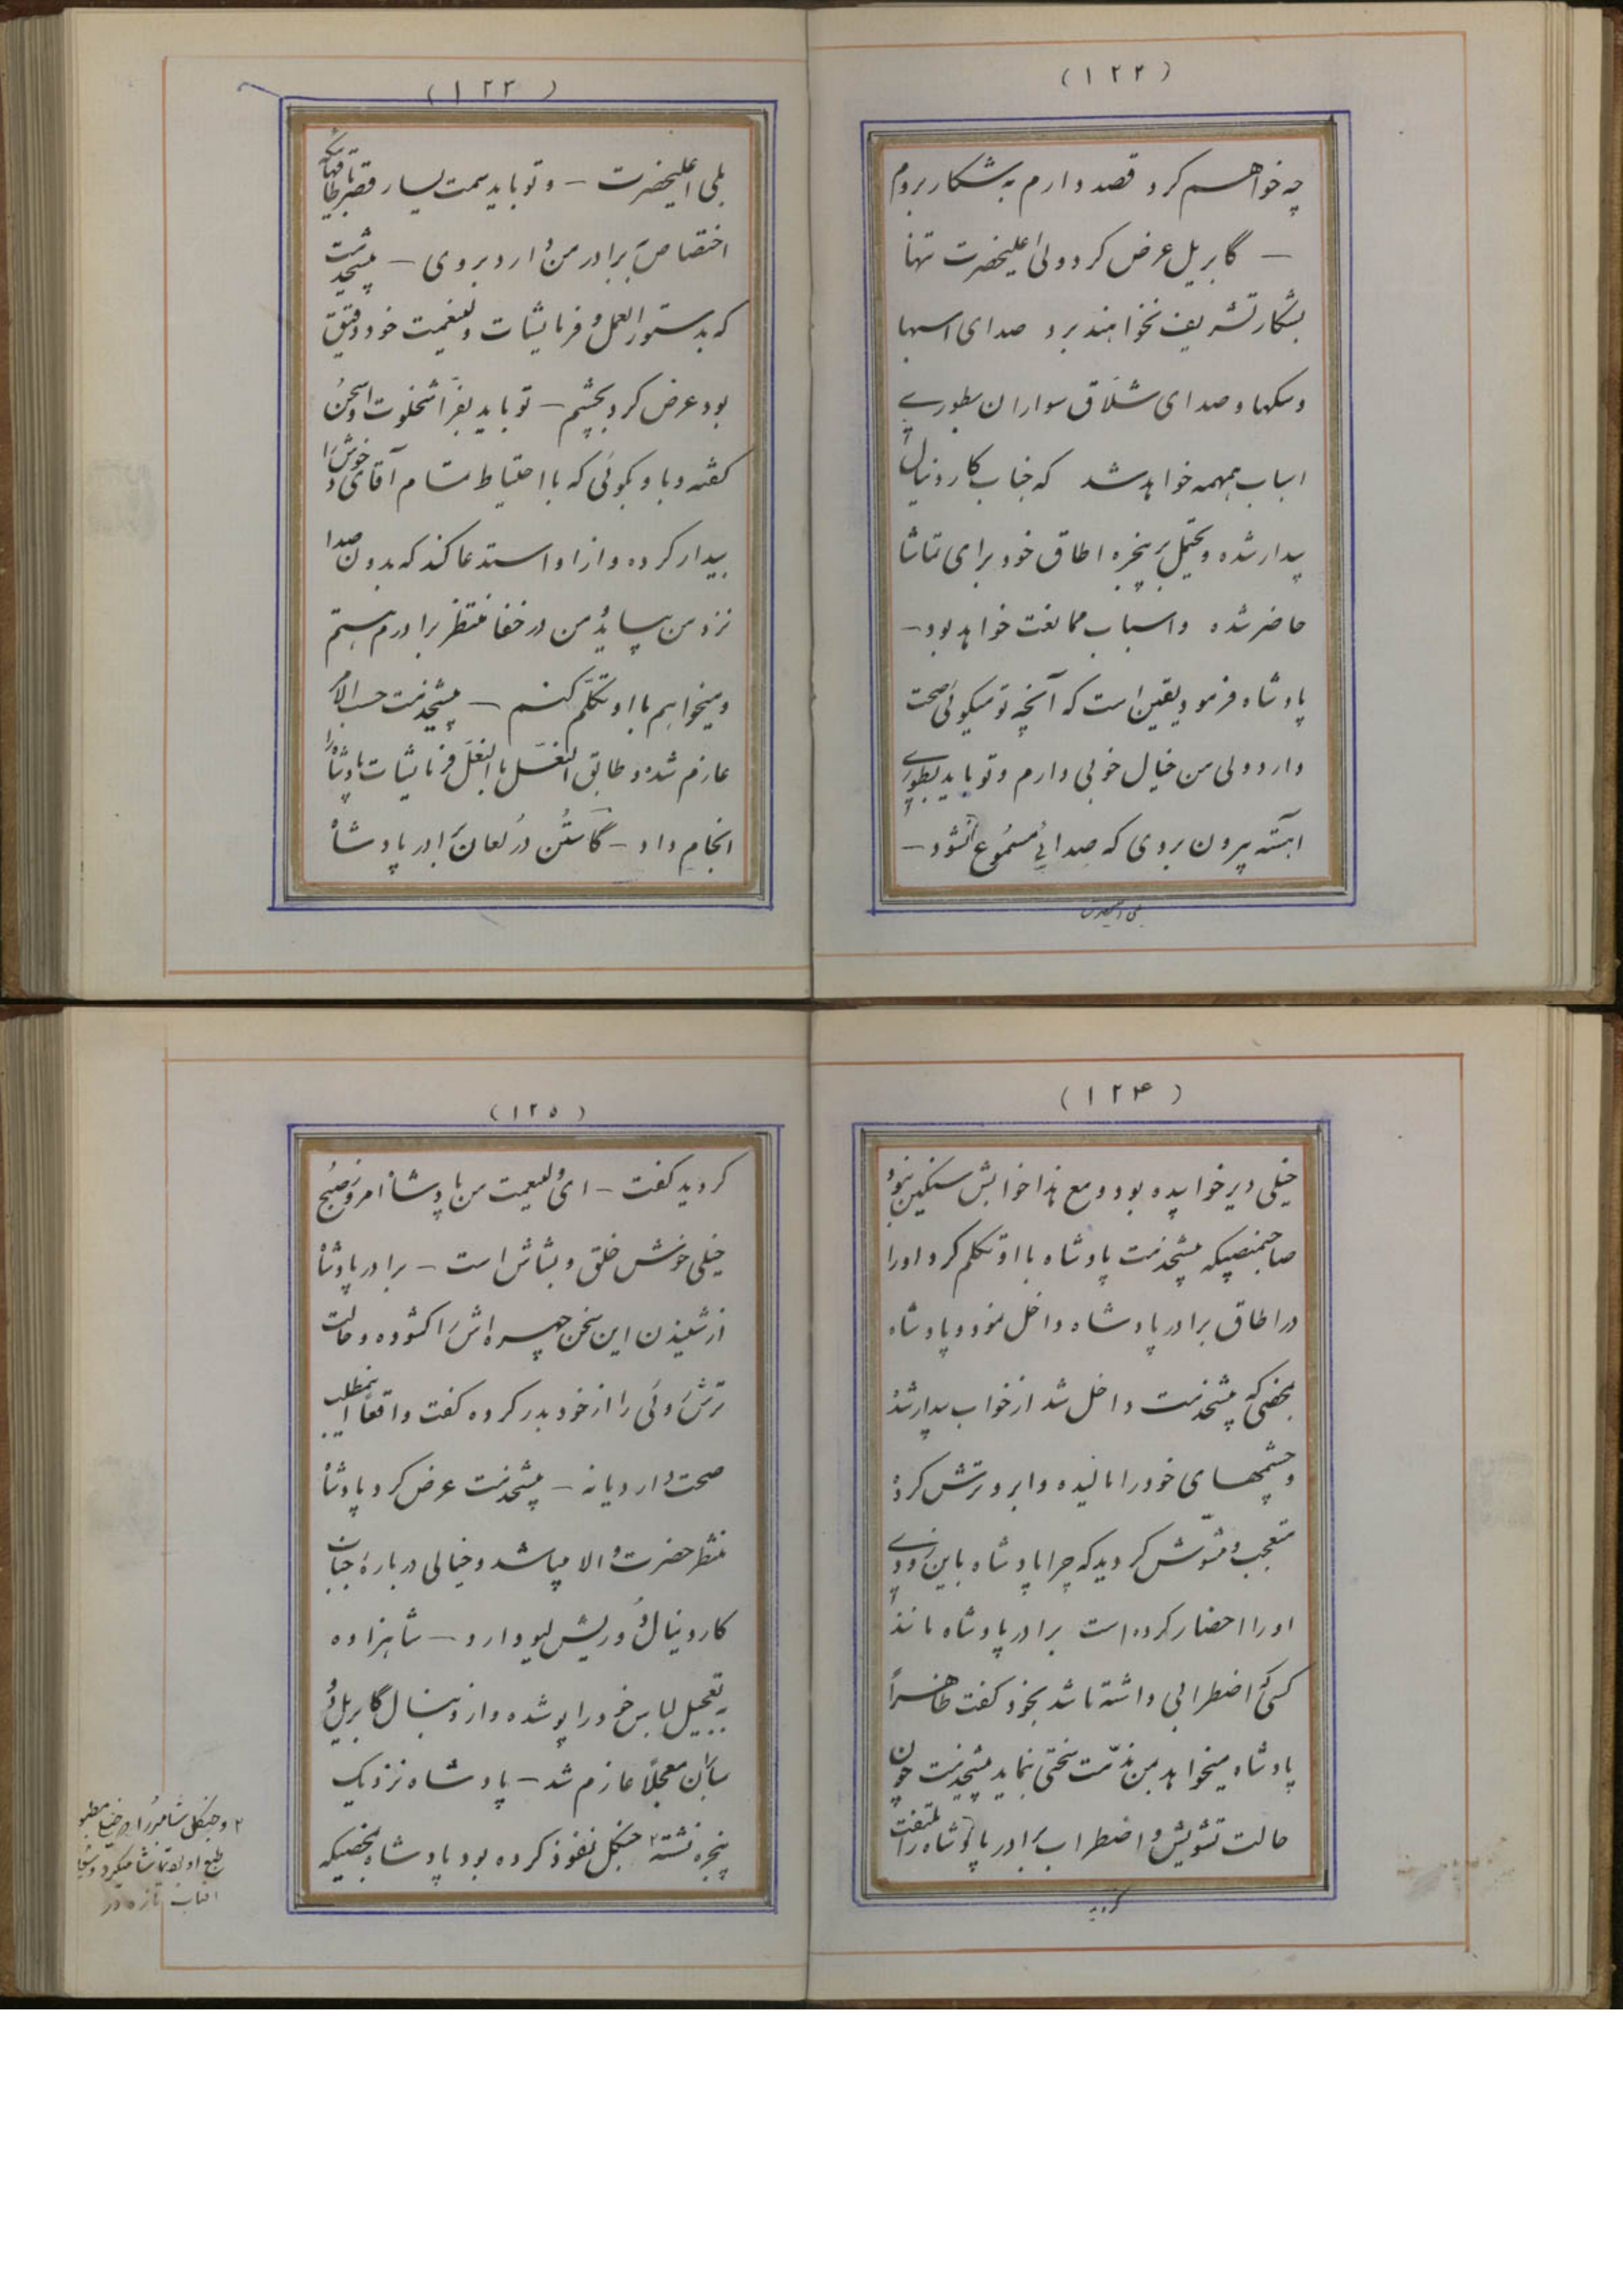 (۱۲۲)
چه خواهم کرد قصد دارم به شکار بروم
— گابریل عرض کرد ولی اعلیحضرت تنها
بشکار تشریف نخواهند برد صدای اسبها
وسکها و صدای شلاق سواران بطوری
اسباب همهمه خواهد شد که جناب کاردینال
بیدار شده و بحتمل بر پنجره اطاق خود برای تماشا
حاضر شده و اسباب ممانعت خواهد بود—
پادشاه فرمود یقین است که آنچه تو میگوئی صحت
دارد ولی من خیال خوبی دارم و تو باید بطوری
آهسته بیرون بروی که صدائی مسموع نشود—
بلی اعلیحضرت
(۱۲۳)
بلی اعلیحضرت — و تو باید بسمت یسار قصر باطاقهائیکه
اختصاص برادر من دارد بروی — پیشخدمت
که بدستورالعمل و فرمایشات ولینعمت خود دقیق
بود عرض کرد بچشم — تو باید بفراشخلوت او سخن
گفته و باو بگوئی که با احتیاط تمام آقای خودش را
بیدار کرده و از او استدعا کند که بدون صدا
نزد من بیاید من در خفا منتظر برادرم هستم
و میخواهم با او تکلم کنم — پیشخدمت حسب الامر
عازم شده و طابق النعل بالنعل فرمایشات پادشاه را
انجام داد — گاستن دُرلعان برادر پادشاه
(۱۲۴)
خیلی دیر خوابیده بود و مع هذا خوابش سنگین نبود
صاحبمنصبیکه پیشخدمت پادشاه با او تکلم کرد او را
در اطاق برادر پادشاه داخل نمود و پادشاه
بمحض که پیشخدمت داخل شد از خواب بیدار شد
و چشمهای خود را مالیده و ابرو ترش کرد
متعجب و مشوش گردید که چرا پادشاه باین زودی
او را احضار کرده است برادر پادشاه مانند
کسی که اضطرابی داشته باشد بخود گفت ظاهراً
پادشاه میخواهد بمن مذمت سختی بنماید پیشخدمت چون
حالت تشویش و اضطراب برادر پادشاه را ملتفت
گردید
(۱۲۵)
گردید گفت — ای ولینعمت من پادشاه امروز صبح
خیلی خوش خلق و بشاش است — برادر پادشاه
از شنیدن این سخن چهره اش را گشوده و حالت
ترش روئی را از خود بدر کرده گفت واقعاً اینمطلب
صحت دارد یا نه — پیشخدمت عرض کرد پادشاه
منتظر حضرت والا میباشد و خیالی درباره جناب
کاردینال دُوریش لیو دارد — شاهزاده
به تعجیل لباس خود را پوشیده و از دنبال گابریل دُ
سأن معجلاً عازم شد — پادشاه نزدیک
پنجره نشسته ۲ جنگل نفوذ کرده بود پادشاه بمحضیکه
۲ و جنگل شامبر را که خیلی مطبوع
طبع او بود تماشا میکرد و شعاع
آفتاب تازه در